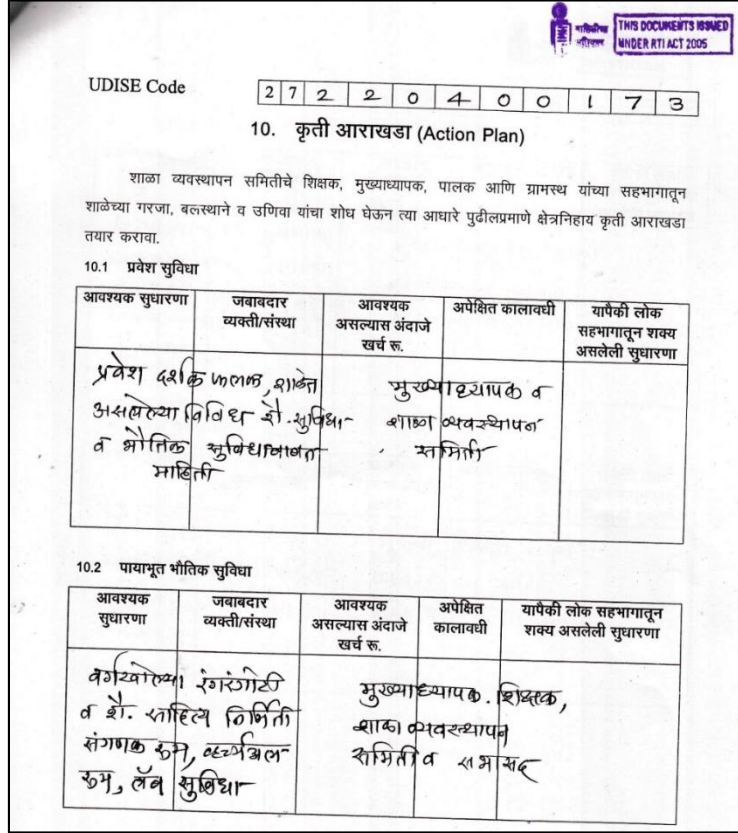 माहितीचा अधिकार
THIS DOCUMENTS ISSUED
UNDER RTI ACT 2005
UDISE Code 2 7 2 2 0 4 0 0 1 7 3
10. कृती आराखडा (Action Plan)
शाळा व्यवस्थापन समितीचे शिक्षक, मुख्याध्यापक, पालक आणि ग्रामस्थ यांच्या सहभागातून
शाळेच्या गरजा, बलस्थाने व उणिवा यांचा शोध घेऊन त्या आधारे पुढीलप्रमाणे क्षेत्रनिहाय कृती आराखडा
तयार करावा.
10.1 प्रवेश सुविधा
आवश्यक सुधारणा
जबाबदार
व्यक्ती/संस्था
आवश्यक
असल्यास अंदाजे
खर्च रू.
अपेक्षित कालावधी
यापैकी लोक
सहभागातून शक्य
असलेली सुधारणा
प्रवेश दर्शक फलक, शाळेत
असलेल्या विविध शै. सुविधा
व भौतिक सुविधाबाबत
माहिती
मुख्याध्यापक व
शाळा व्यवस्थापन
समिती
10.2 पायाभूत भौतिक सुविधा
आवश्यक
सुधारणा
जबाबदार
व्यक्ती/संस्था
आवश्यक
असल्यास अंदाजे
खर्च रू.
अपेक्षित
कालावधी
यापैकी लोक सहभागातून
शक्य असलेली सुधारणा
वर्गखोल्या रंगरंगोटी
व शै. साहित्य निर्मिती
संगणक रुम, व्हर्च्युअल
रुम, लॅब सुविधा
मुख्याध्यापक. शिक्षक,
शाळा व्यवस्थापन
समिती व सभासद